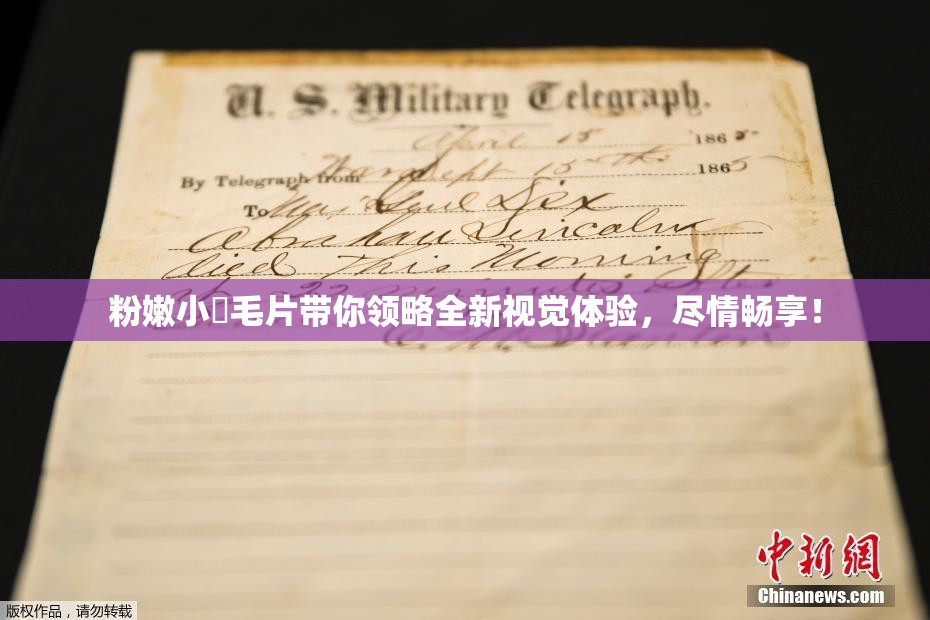 U. S. Military Telegraph.
April 15 1865
By Telegraph from War Dept 15th 1865
To Maj Genl Dix
Abraham Lincoln
died This Morning
22 minutes after
粉嫩小毛片带你领略全新视觉体验，尽情畅享！
E. M. Stanton
中新网
Chinanews.com
版权作品，请勿转载